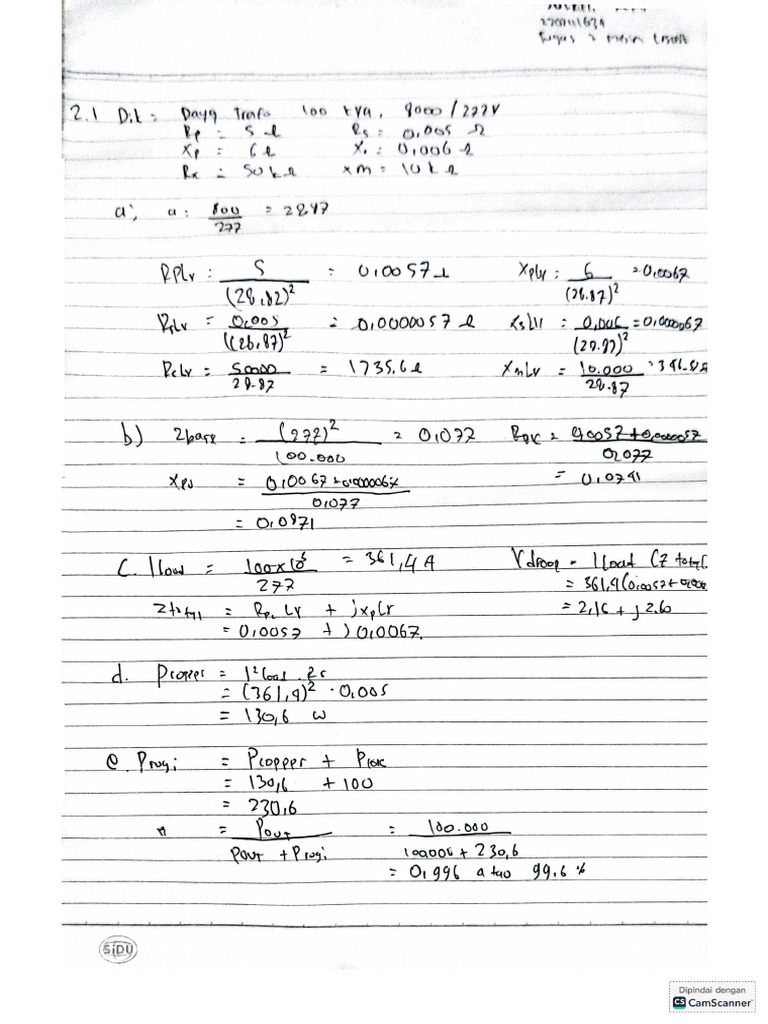 Tugas 2 mesin Listrik
2.1 Dik = Daya Trafo 100 kVA, 8000/277V
Rp = 5 Ω Rs = 0,005 Ω
Xp = 6 Ω Xs = 0,006 Ω
Rc = 50 k Ω Xm = 10 k Ω
a', a : 800 / 277 = 28,87
RpLv : 5 / (28,82)² = 0,0057 Ω XpLv : 6 / (28,87)² = 0,0067
RsLv = 0,005 / ((28,87)² = 0,0000057 Ω XsLV = 0,006 / (28,87)² = 0,0000067
RcLv = 50000 / 28.87 = 1735,6 Ω XmLv = 10.000 / 28.87
b) Zbase = (277)² / 100.000 = 0,077 = 0,0057 + 0,0000057 / 0,077
Xpu = 0,0067 + 0,0000067 / 0,077 = 0,0741
= 0,0871
C. Iload = 100x10³ / 277 = 361,4 A Vdroop = Iload (Z total
Ztotal = Rp Lv + jXpLr = 361,9 (0,0057 +
= 0,0057 + j 0,0067. = 2,16 + j 2.60
d. Pcopper = I² load . Rs
= (361,9)² . 0,005
= 130,6 w
e. Prugi = Pcopper + Pcore
= 130,6 + 100
= 230,6
n = Pout / Pout + Prugi = 100.000 / 100000 + 230,6
= 0,996 atau 99.6 %
SiDU
Dipindai dengan
CS CamScanner